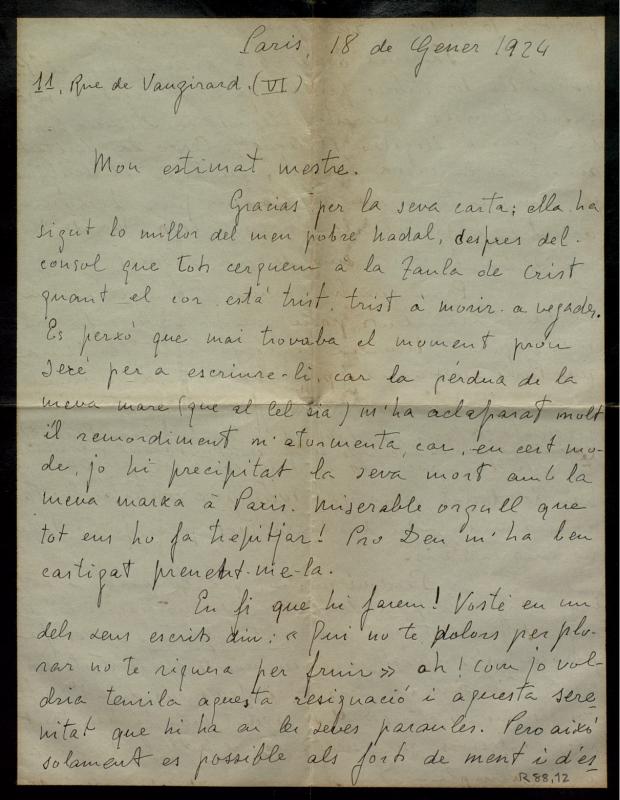 Paris, 18 de Gener 1924
11, Rue de Vaugirard. (VI)
Mon estimat mestre.
Gracias per la seva carta; ella ha
sigut lo millor del meu pobre Nadal, despres del
consol que tots cerquem à la Taula de Crist
quant el cor está trist, trist à morir a vegades.
Es perxó que mai trovaba el moment prou
seré per a escriure-li, car la pérdua de la
meva mare (que al cel sia) m'ha aclaparat molt
i'l remordiment m'atormenta, car, en cert mo-
de, jo hi precipitat la seva mort amb la
meva marxa à Paris. Miserable orgull que
tot ens ho fa trepitjar! Pro Deu m'ha ben
castigat prenent-me-la.
En fi que hi farem! Vosté en un
dels seus escrits diu: « Qui no te dolors per plo-
rar no te riquesa per fruir » ah! Com jo vol-
dria tenirla aquesta resignació i aquesta sere-
nitat que hi ha en les seves paraules. Pero això
solament es possible als forts de ment i d'es
R 88,12